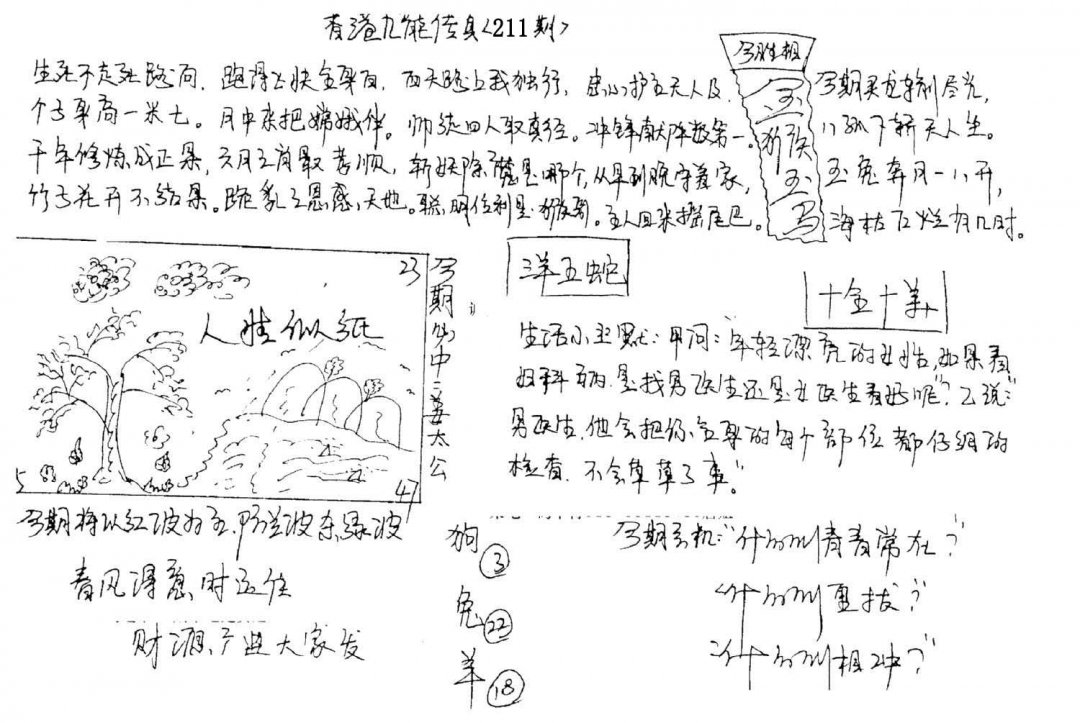 香港九龍传真<211期>
生死不走死路向，跑得上快全身白，西天路上我独行，忠心护主天人及，
个子身高一米七。月中亲把嫦娥伴。师徒四人取真经。冲锋献阵数第一。
千年修炼成正果，六月三肖最孝顺，斩妖除魔是哪个，从早到晚守着家，
竹子花开不结果。跪乳之恩感天地。聪明伶利是猴哥。主人回来摇尾巴。
今胜相
玉
猴
玉
马
八下斩天人生。
玉兔奔月一八开，
海枯石烂有几时。
23
人生似纸
5
47
今期
中三
姜太公
三羊五蛇
十全十羊
生活小幽默：甲问："年轻漂亮的女性，如果看
妇科病，是找男医生还是女医生看好呢"？乙说："
男医生，他会把你全身的每个部位都仔细的
检查，不会草草了事。"
今期将以红波为主，防兰波杀绿波
春风得意时运佳
财源广进大家发
狗③
兔㉒
羊⑱
今期玄机："什么叫青春常在？"
"什么叫更拔？"
"什么叫相冲？"